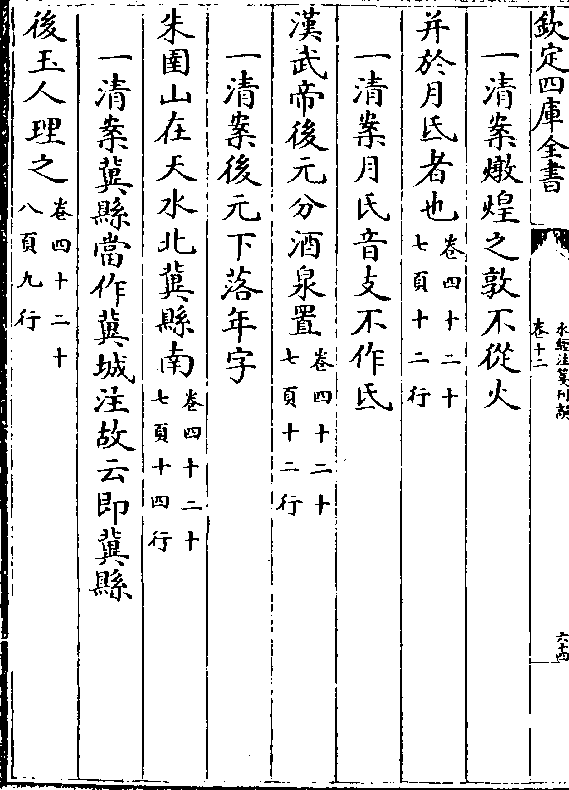 欽定四庫全書
水經注箋刊誤
卷十二
六十四
一清案燉煌之敦不從火
并於月氏者也卷四十二十七頁十二行
一清案月氏音支不作氐
漢武帝後元分酒泉置卷四十二十七頁十二行
一清案後元下落年字
朱圉山在天水北冀縣南卷四十二十七頁十四行
一清案冀縣當作冀城注故云即冀縣
後玉人理之卷四十二十八頁九行